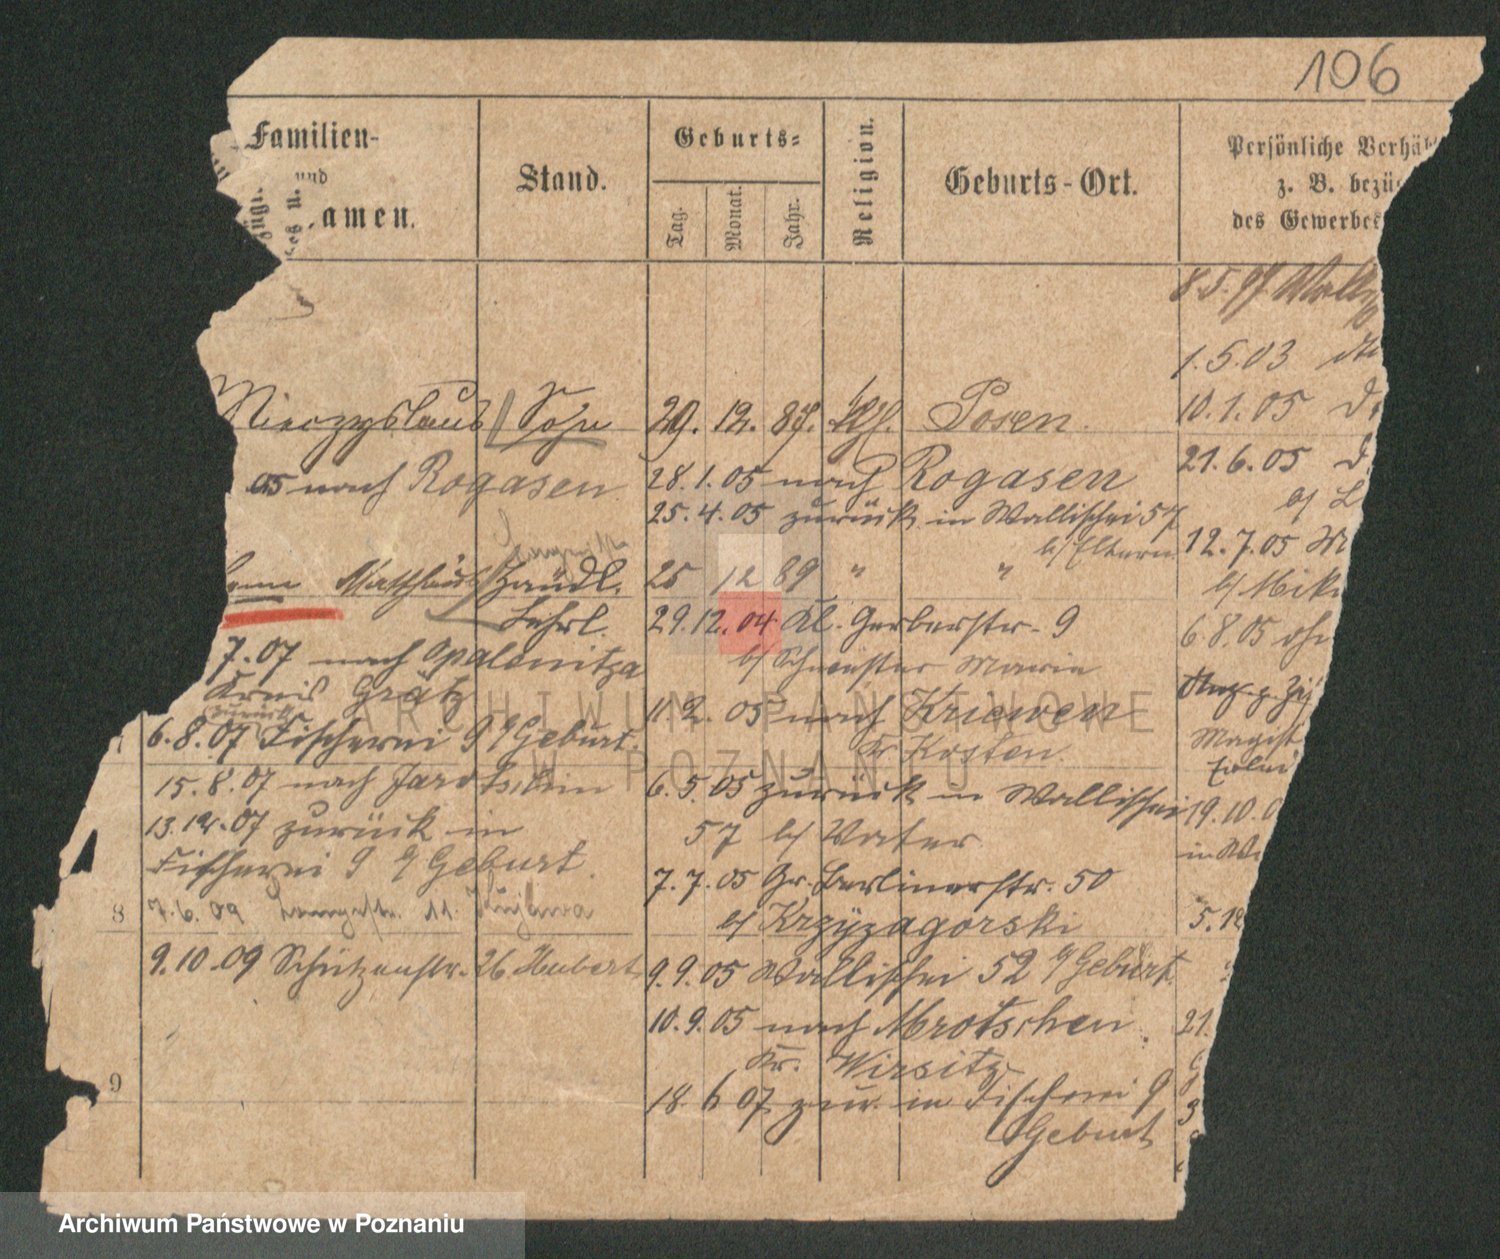 106
Familien-
und
amen.
Stand.
Geburts=
Tag.
Monat.
Jahr.
Religion.
Geburts-Ort.
Persönliche Verhäl
z. B. bezü
des Gewerbes
8.5.97
1.5.03
10.1.05
21.6.05
12.7.05
b/ Mik
6.8.05
19.10.0
5.12
21.
Mieczyslaus Sohn 29. 12. 87. Kth. Posen.
05 nach Rogasen 28.1.05 nach Rogasen
25.4.05 zurück in Wallischei 57
b/ Eltern
Matthäus Händl. 25 12 89 " "
Lehrl. 29.12.04 Kl. Gerberstr. 9
b/ Schwester Maria
7.07 nach Opalenitza
Kreis Grätz
11.2.05 nach Kriewen
Kr. Kosten.
zurück
6.8.07 Fischerei 9 b/ Geburt.
15.8.07 nach Jarotschin
6.5.05 zurück in Wallischei
57 b/ Vater
13.12.07 zurück in
Fischerei 9 b/ Geburt.
7.7.05 Gr. Berlinerstr. 50
b/ Krzyzagorski
8
7.6.09 Langestr. 11. Kujawa
9.10.09 Schützenstr. 26 Hubert
9.9.05 Wallischei 52 b/ Geburt.
10.9.05 nach Mrotschen
Kr. Wirsitz
9
18.6 07 zur. in Fischerei 9
Geburt
ARCHIWUM PAŃSTWOWE
W POZNANIU
Archiwum Państwowe w Poznaniu